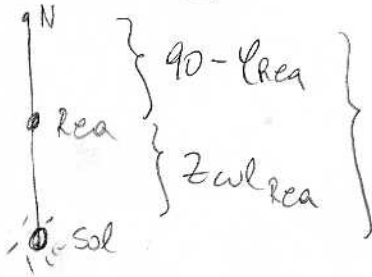 N
90 - φRea
Rea
Zcul Rea
Sol